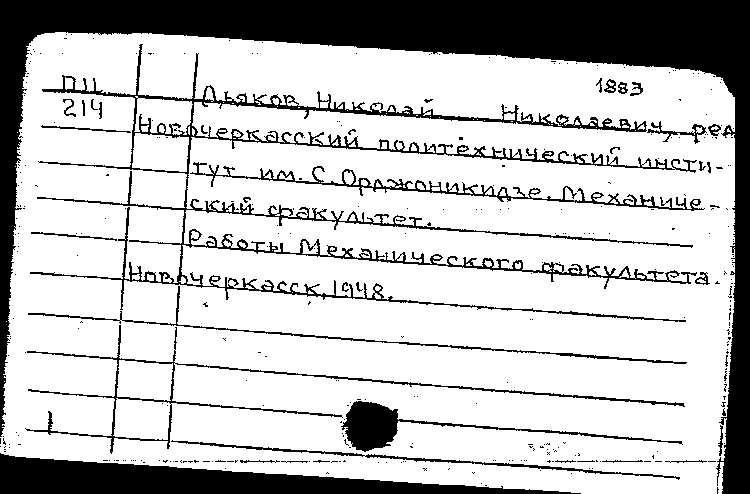 1883
П11
214
Дьяков, Николай Николаевич, ред
Новочеркасский политехнический инсти-
тут им. С. Орджоникидзе. Механиче-
ский факультет.
Работы Механического факультета.
Новочеркасск, 1948.
1